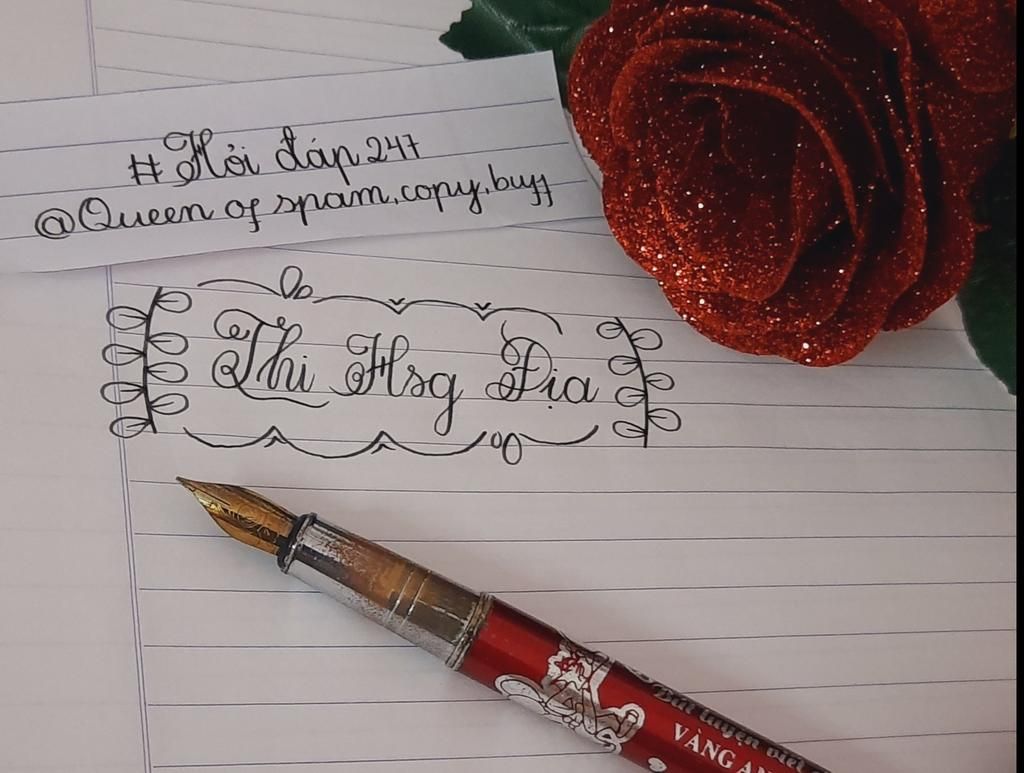 #Hỏi đáp 247
@Queen of spam,copy,buff
Thi Hsg Địa
Bút luyện viết
VÀNG AN